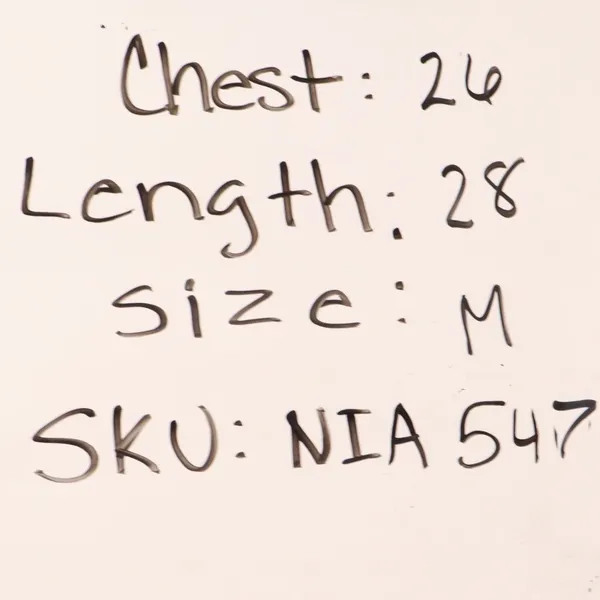 Chest: 26
Length: 28
Size: M
SKU: NIA 547